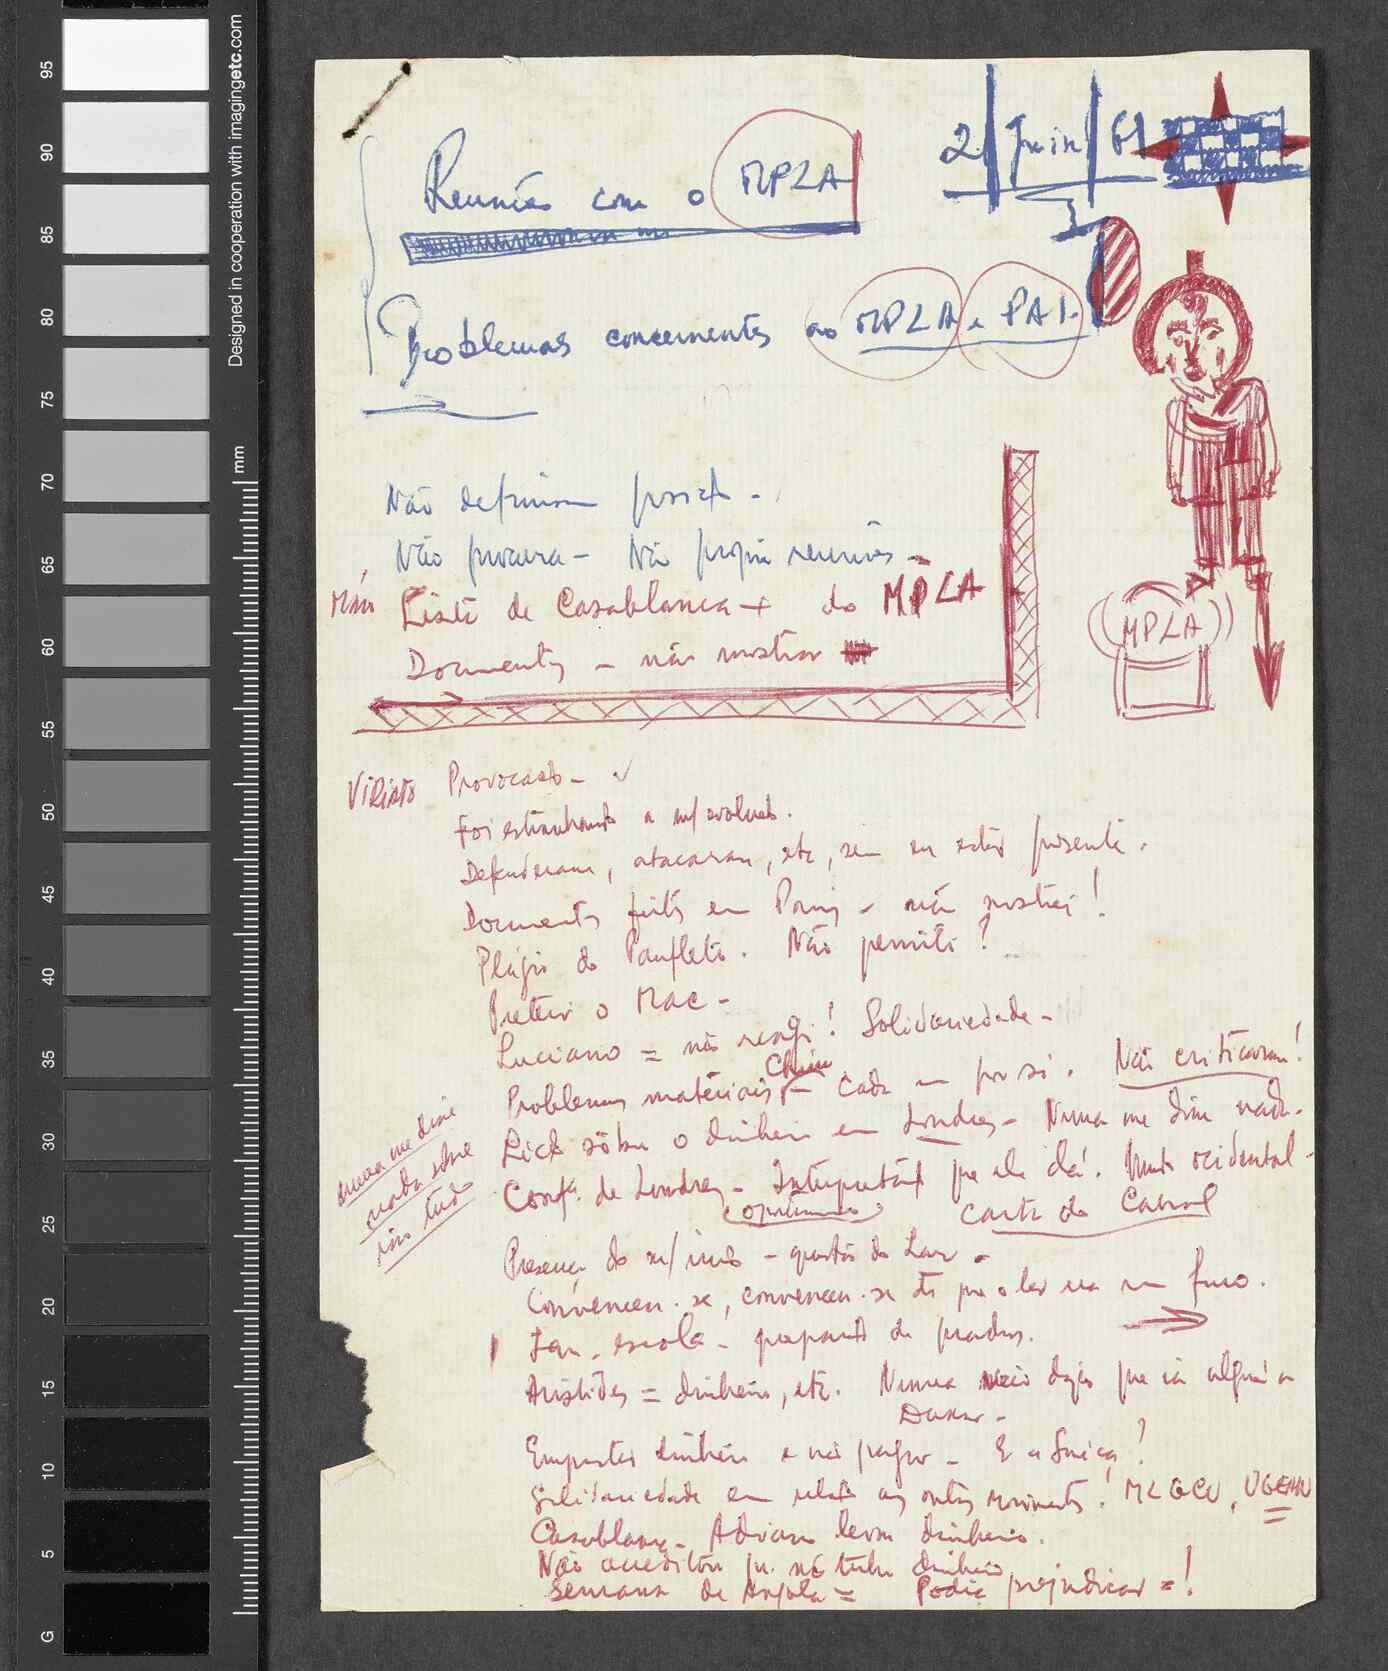 2 / Juin / 61
Reunião com o MPLA
Problemas concernentes ao MPLA e PAI.
Não definiram posição -
Não procura - Não reuniões -
Mário Liste de Casablanca + do MPLA
Documentos - não mostrar
MPLA
Viriato Provocação -
Foi estranhando a m/ evolução.
Defenderam, atacaram, etc, sem eu estar presente.
Documentos feitos em Paris - não mostrei!
Plágio do Panfleto. Não permiti?
Preterir o Mac -
Luciano = não reagi! Solidariedade -
Problemas matériais - China cada um por si. Não criticaram!
sobre o dinheiro em Londres - Nunca me disse nada.
nunca me disse nada sobre isso tudo
Confª. de Londres - Interpretação que ele dá. Mundo ocidental -
(optimismo) carta do Cabral
Presença do m/ irmão - questão do Lar -
Convencem-se, convencem-se de que o lar era um furo.
Lar - escola - preparação de quadros.
Aristides = dinheiro, etc. Nunca que ia alguém a
Dakar -
Emprestei dinheiro e não - E a Suécia?
Solidariedade em relação aos outros movimentos! MLGCV, UGEAN
Casablanca - Adriano levou dinheiro.
Não acreditou que não tinha dinheiro
Semana de Angola = Podia prejudicar = !
Designed in cooperation with imagingetc.com
mm
95
90
85
80
75
70
65
60
55
50
45
40
35
30
25
20
15
10
5
G